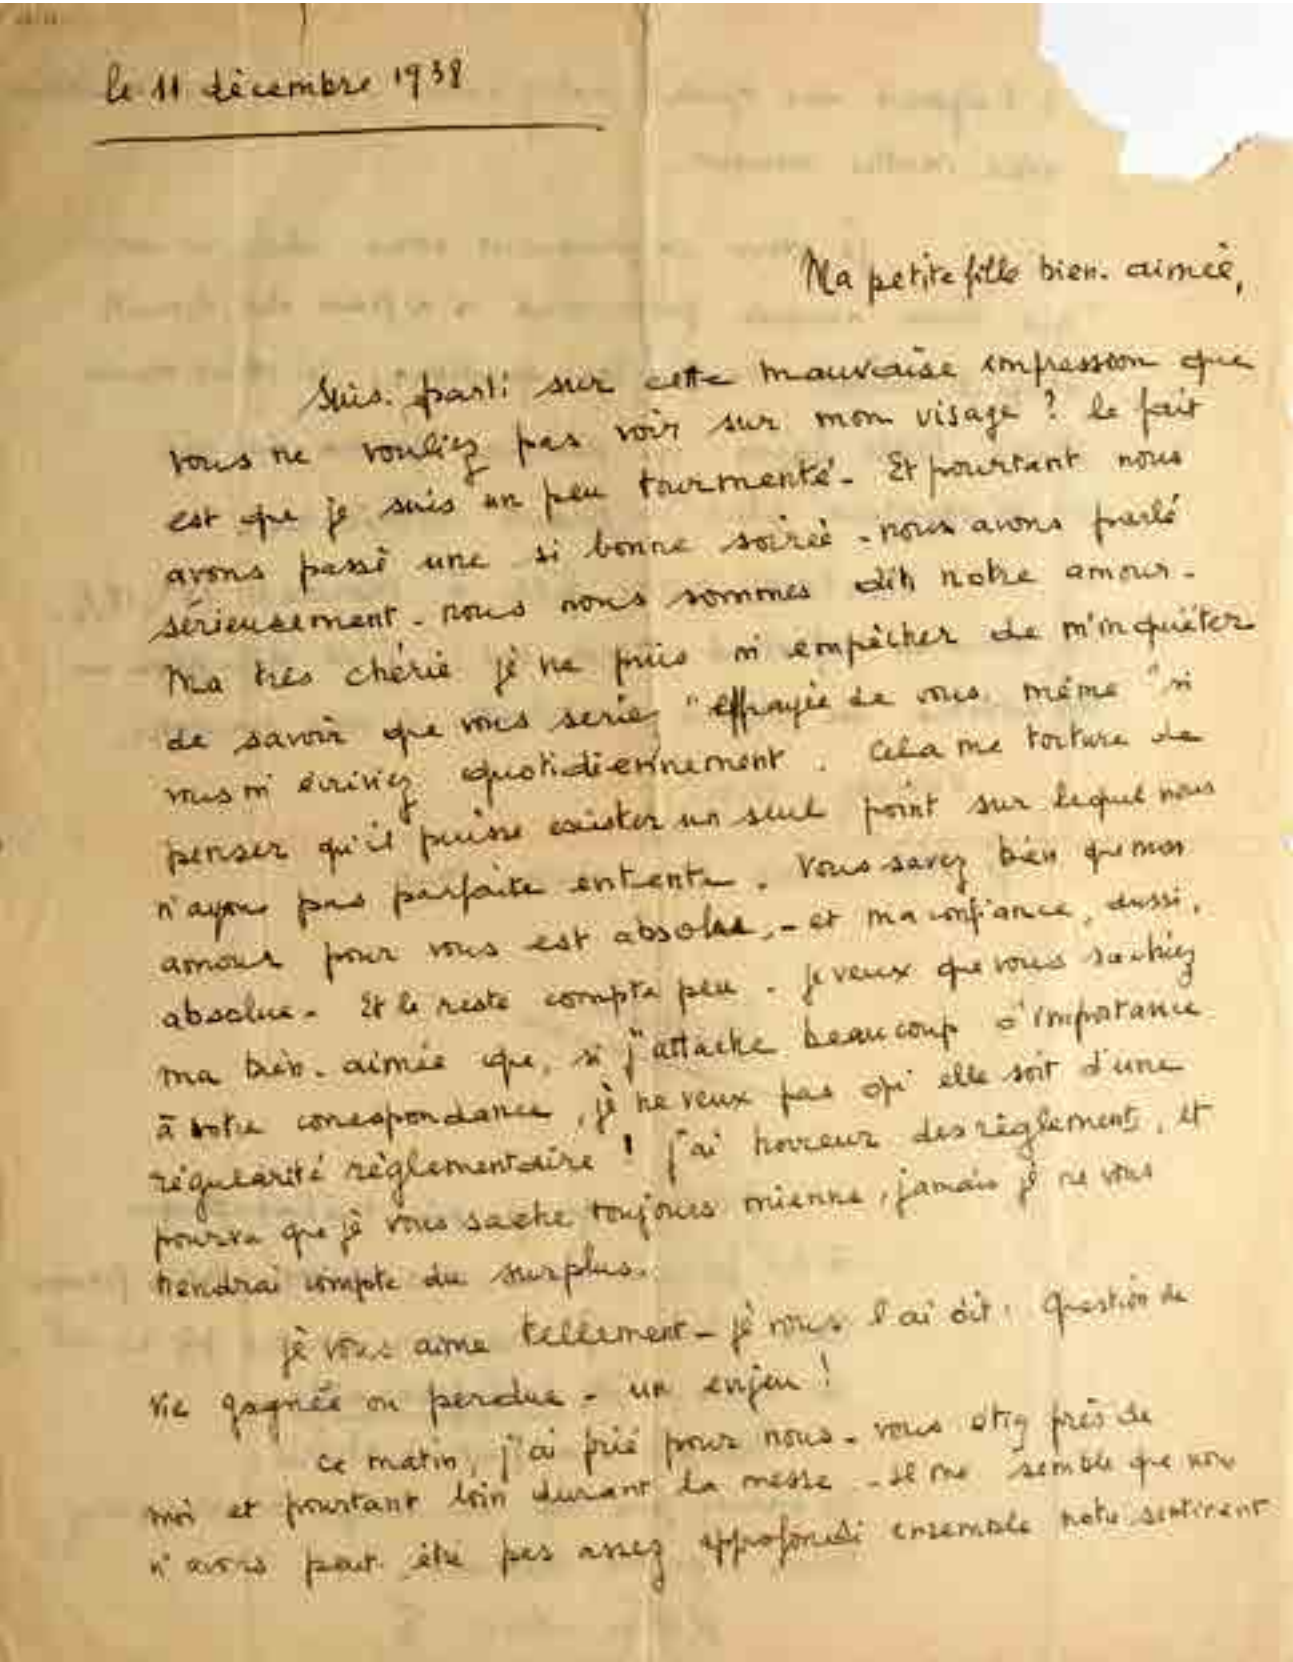 le 11 décembre 1938
Ma petite fille bien-aimée,
Suis-parti sur cette mauvaise impression que
vous ne vouliez pas voir sur mon visage ? le fait
est que je suis un peu tourmenté - Et pourtant nous
avons passé une si bonne soirée - nous avons parlé
sérieusement - nous nous sommes dits notre amour -
Ma très chérie je ne puis m'empêcher de m'inquiéter
de savoir que vous seriez "effrayée de vous même" si
vous m'écriviez quotidiennement. Cela me torture de
penser qu'il puisse exister un seul point sur lequel nous
n'ayons pas parfaite entente. Vous savez bien que mon
amour pour vous est absolu, - et ma confiance, aussi,
absolue - Et le reste compte peu - je veux que vous sachiez
ma bien-aimée que, si j'attache beaucoup d'importance
à votre correspondance, je ne veux pas qu'elle soit d'une
régularité réglementaire ! j'ai horreur des règlements, et
pourvu que je vous sache toujours mienne, jamais je ne vous
tiendrai compte du surplus.
je vous aime tellement - je vous l'ai dit : question de
vie gagnée ou perdue - un enjeu !
ce matin, j'ai prié pour nous - vous étiez près de
moi et pourtant loin durant la messe - il me semble que nous
n'avons peut-être pas assez approfondi ensemble notre sentiment